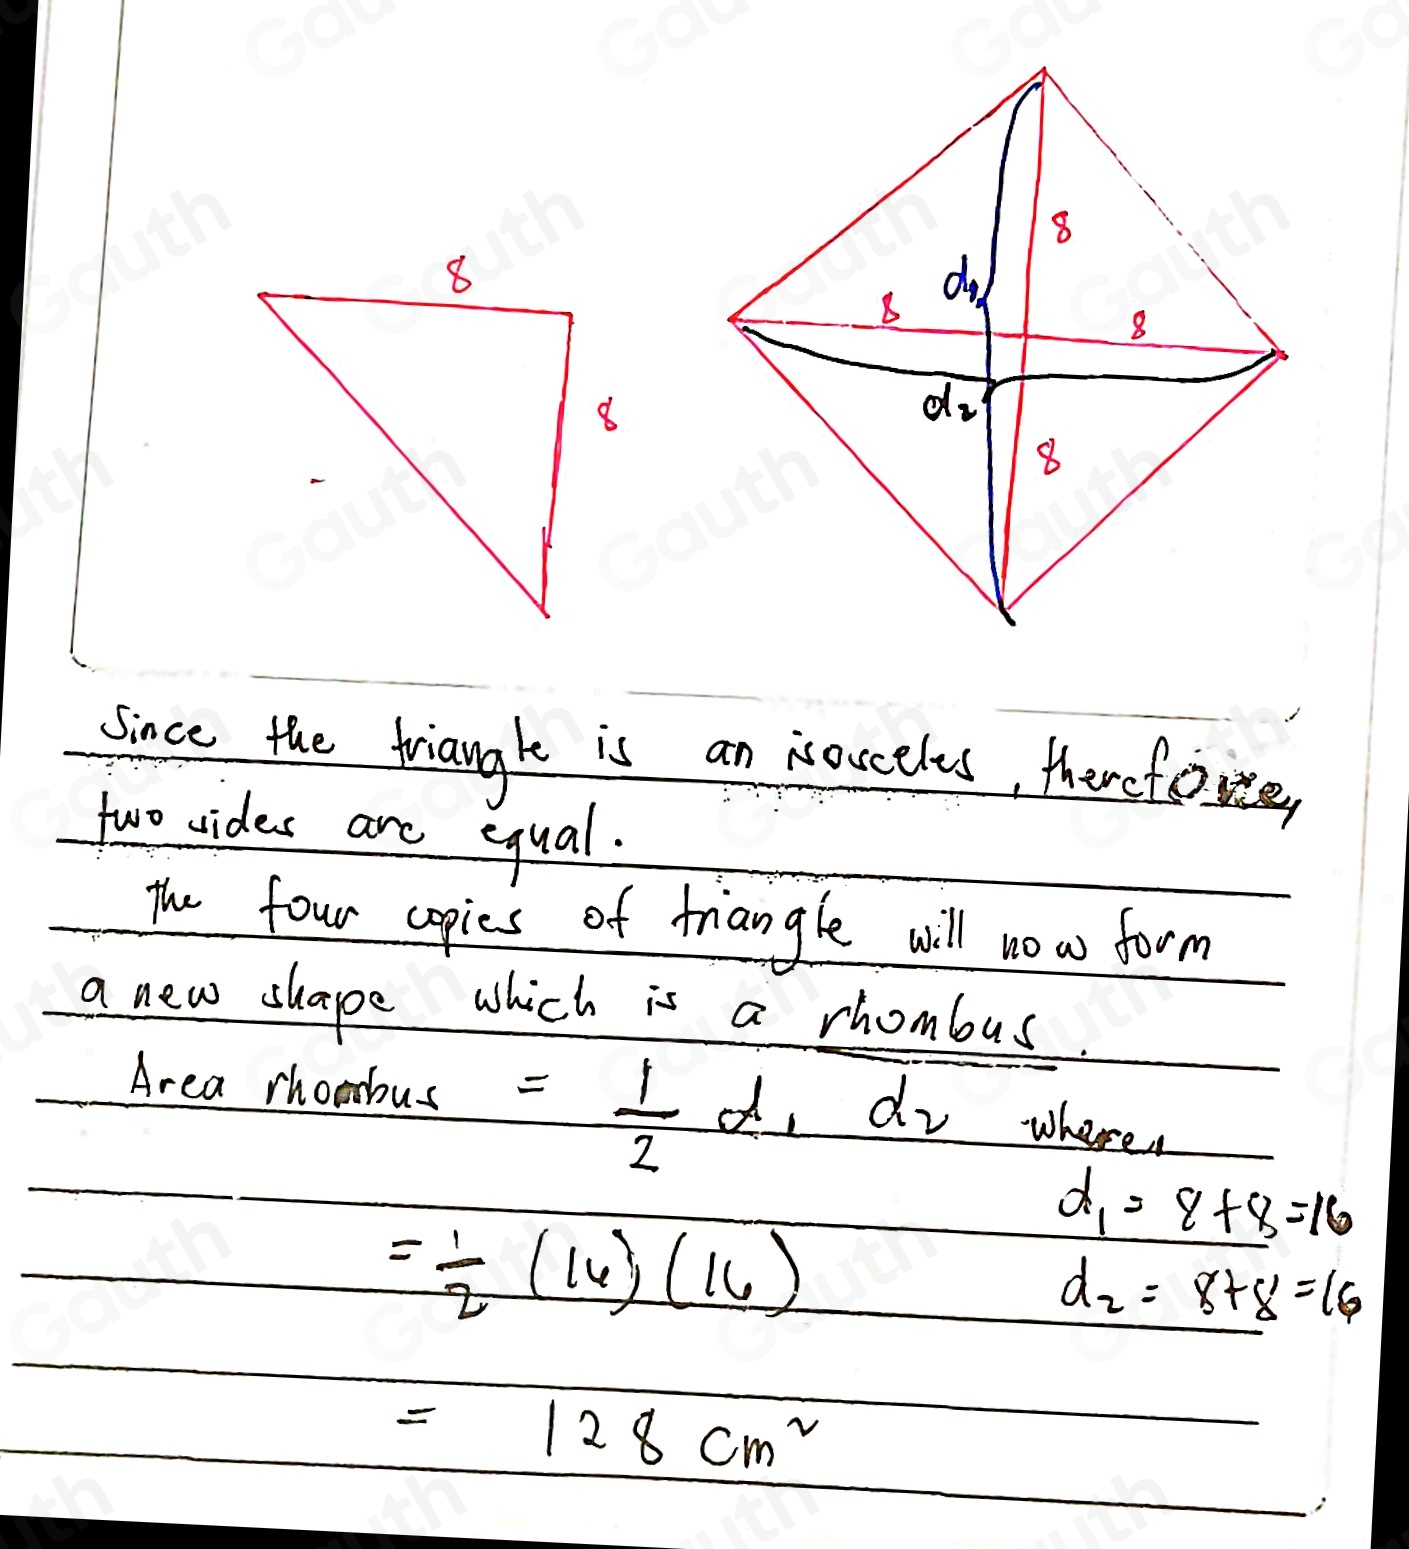 8
8
8
d₁
8
8
d₂
8
Since the triangle is an isosceles, therefore,
two sides are equal.
The four copies of triangle will now form
a new shape which is a rhombus.
Area rhombus = 1/2 d₁ d₂ where
d₁ = 8+8=16
= 1/2 (16) (16)
d₂ = 8+8=16
= 128 cm²
Gauth